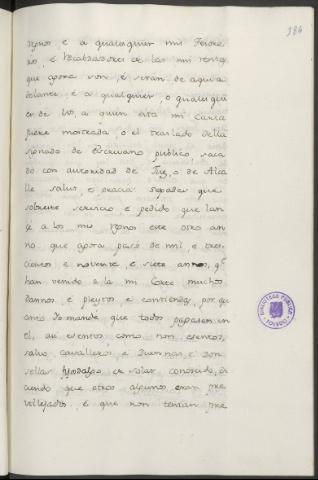 184
regnos e a qualesquier mis Tesore
ros, e Recabdadores de las mis rentas
que agora son, e seran de aqui a
delante e a qualquier, o qualesqui
er de vos, a quien esta mi carta
fuere mostrada, o el traslado della
signado de Escrivano publico, saca
do con autoridad de Juez, o de Alca
lle salud, e gracia sepades que
sobre el servicio e pedido que lan
çe a los mis regnos este otro an
no que agora pasó de mil, e tres
cientos e noventa, e siete annos, q.e
han venido a la mi Corte muchos
dannos e pleytos e contiendas, por qu
anto Yo mandé que todos pagasen en
el, asi esentos como non esentos,
salvo cavalleros e Duennas, e Don
sellas fijosdalgo de solar conoscido, di
ciendo que otros algunos eran pre
villejados e que non tenian pre
BIBLIOTECA PUBLICA
TOLEDO